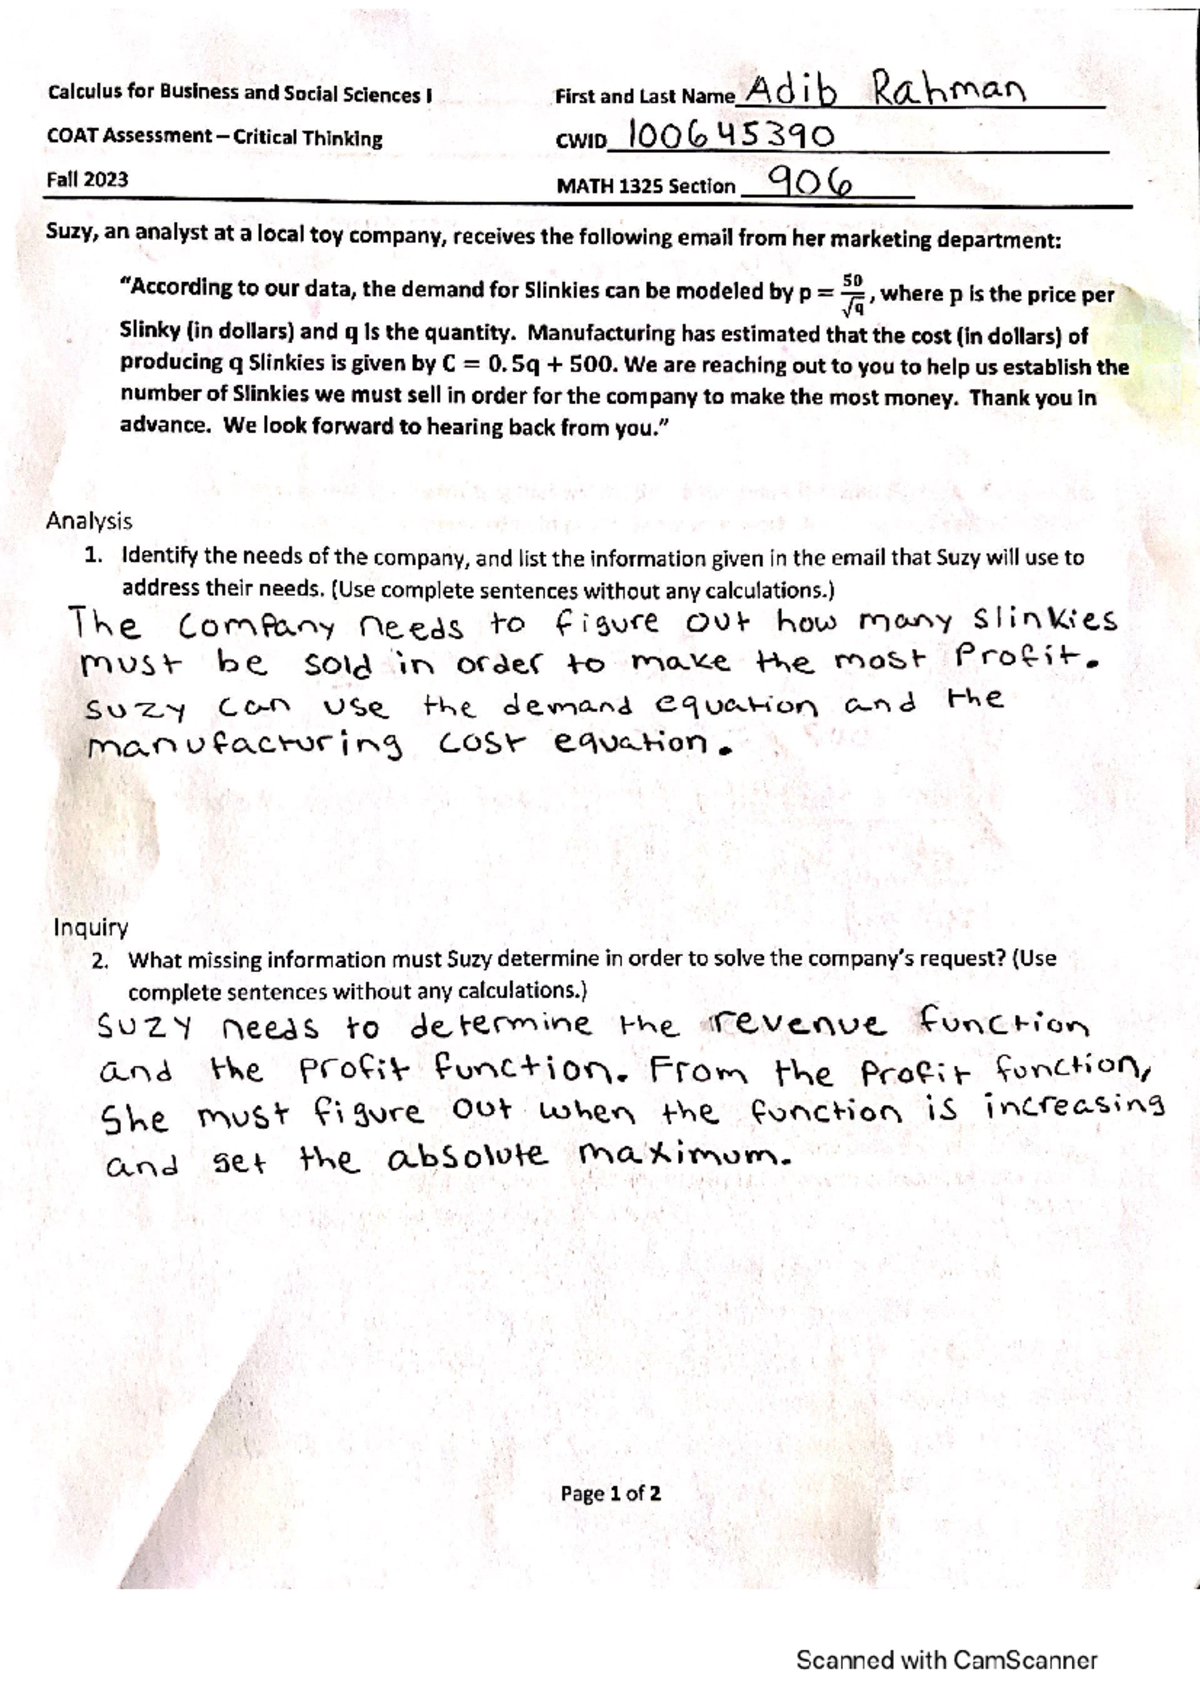 Calculus for Business and Social Sciences I
First and Last Name Adib Rahman
COAT Assessment – Critical Thinking
CWID 100645390
Fall 2023
MATH 1325 Section 906
Suzy, an analyst at a local toy company, receives the following email from her marketing department:
"According to our data, the demand for Slinkies can be modeled by p = 50/√q, where p is the price per
Slinky (in dollars) and q is the quantity. Manufacturing has estimated that the cost (in dollars) of
producing q Slinkies is given by C = 0.5q + 500. We are reaching out to you to help us establish the
number of Slinkies we must sell in order for the company to make the most money. Thank you in
advance. We look forward to hearing back from you."
Analysis
1. Identify the needs of the company, and list the information given in the email that Suzy will use to
address their needs. (Use complete sentences without any calculations.)
The company needs to figure out how many slinkies
must be sold in order to make the most profit.
suzy can use the demand equation and the
manufacturing cost equation.
Inquiry
2. What missing information must Suzy determine in order to solve the company's request? (Use
complete sentences without any calculations.)
Suzy needs to determine the revenue function
and the profit function. From the profit function,
she must figure out when the function is increasing
and get the absolute maximum.
Page 1 of 2
Scanned with CamScanner